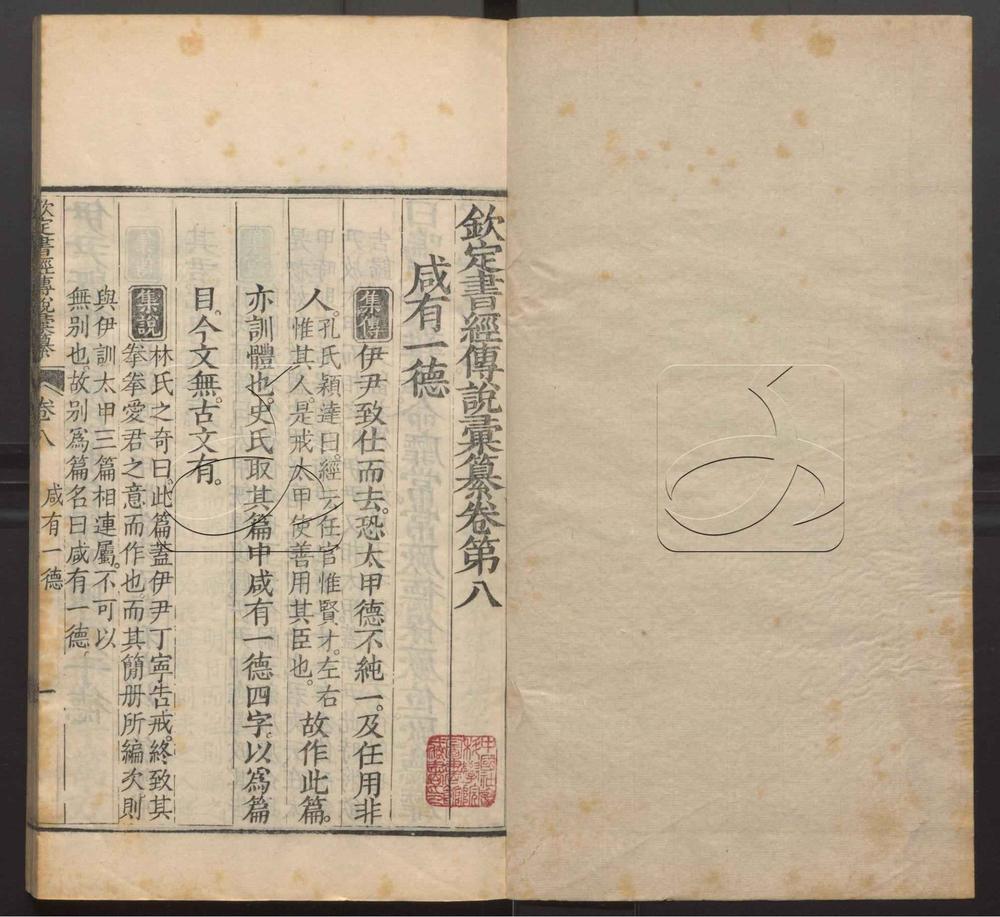 欽定書經傳說彙纂卷第八
咸有一德
集傳 伊尹致仕而去。恐太甲德不純一。及任用非
人。孔氏穎達曰。經云任官惟賢才。左右
惟其人。是戒太甲使善用其臣也。故作此篇。
亦訓體也。史氏取其篇中咸有一德四字。以為篇
目。今文無。古文有。
集說 林氏之奇曰。此篇蓋伊尹丁寧告戒。終致其
拳拳愛君之意而作也。而其簡册所編次。則
與伊訓太甲三篇相連屬。不可以
無別也。故別爲篇名曰咸有一德。
欽定書經傳說彙纂 卷八 咸有一德 一